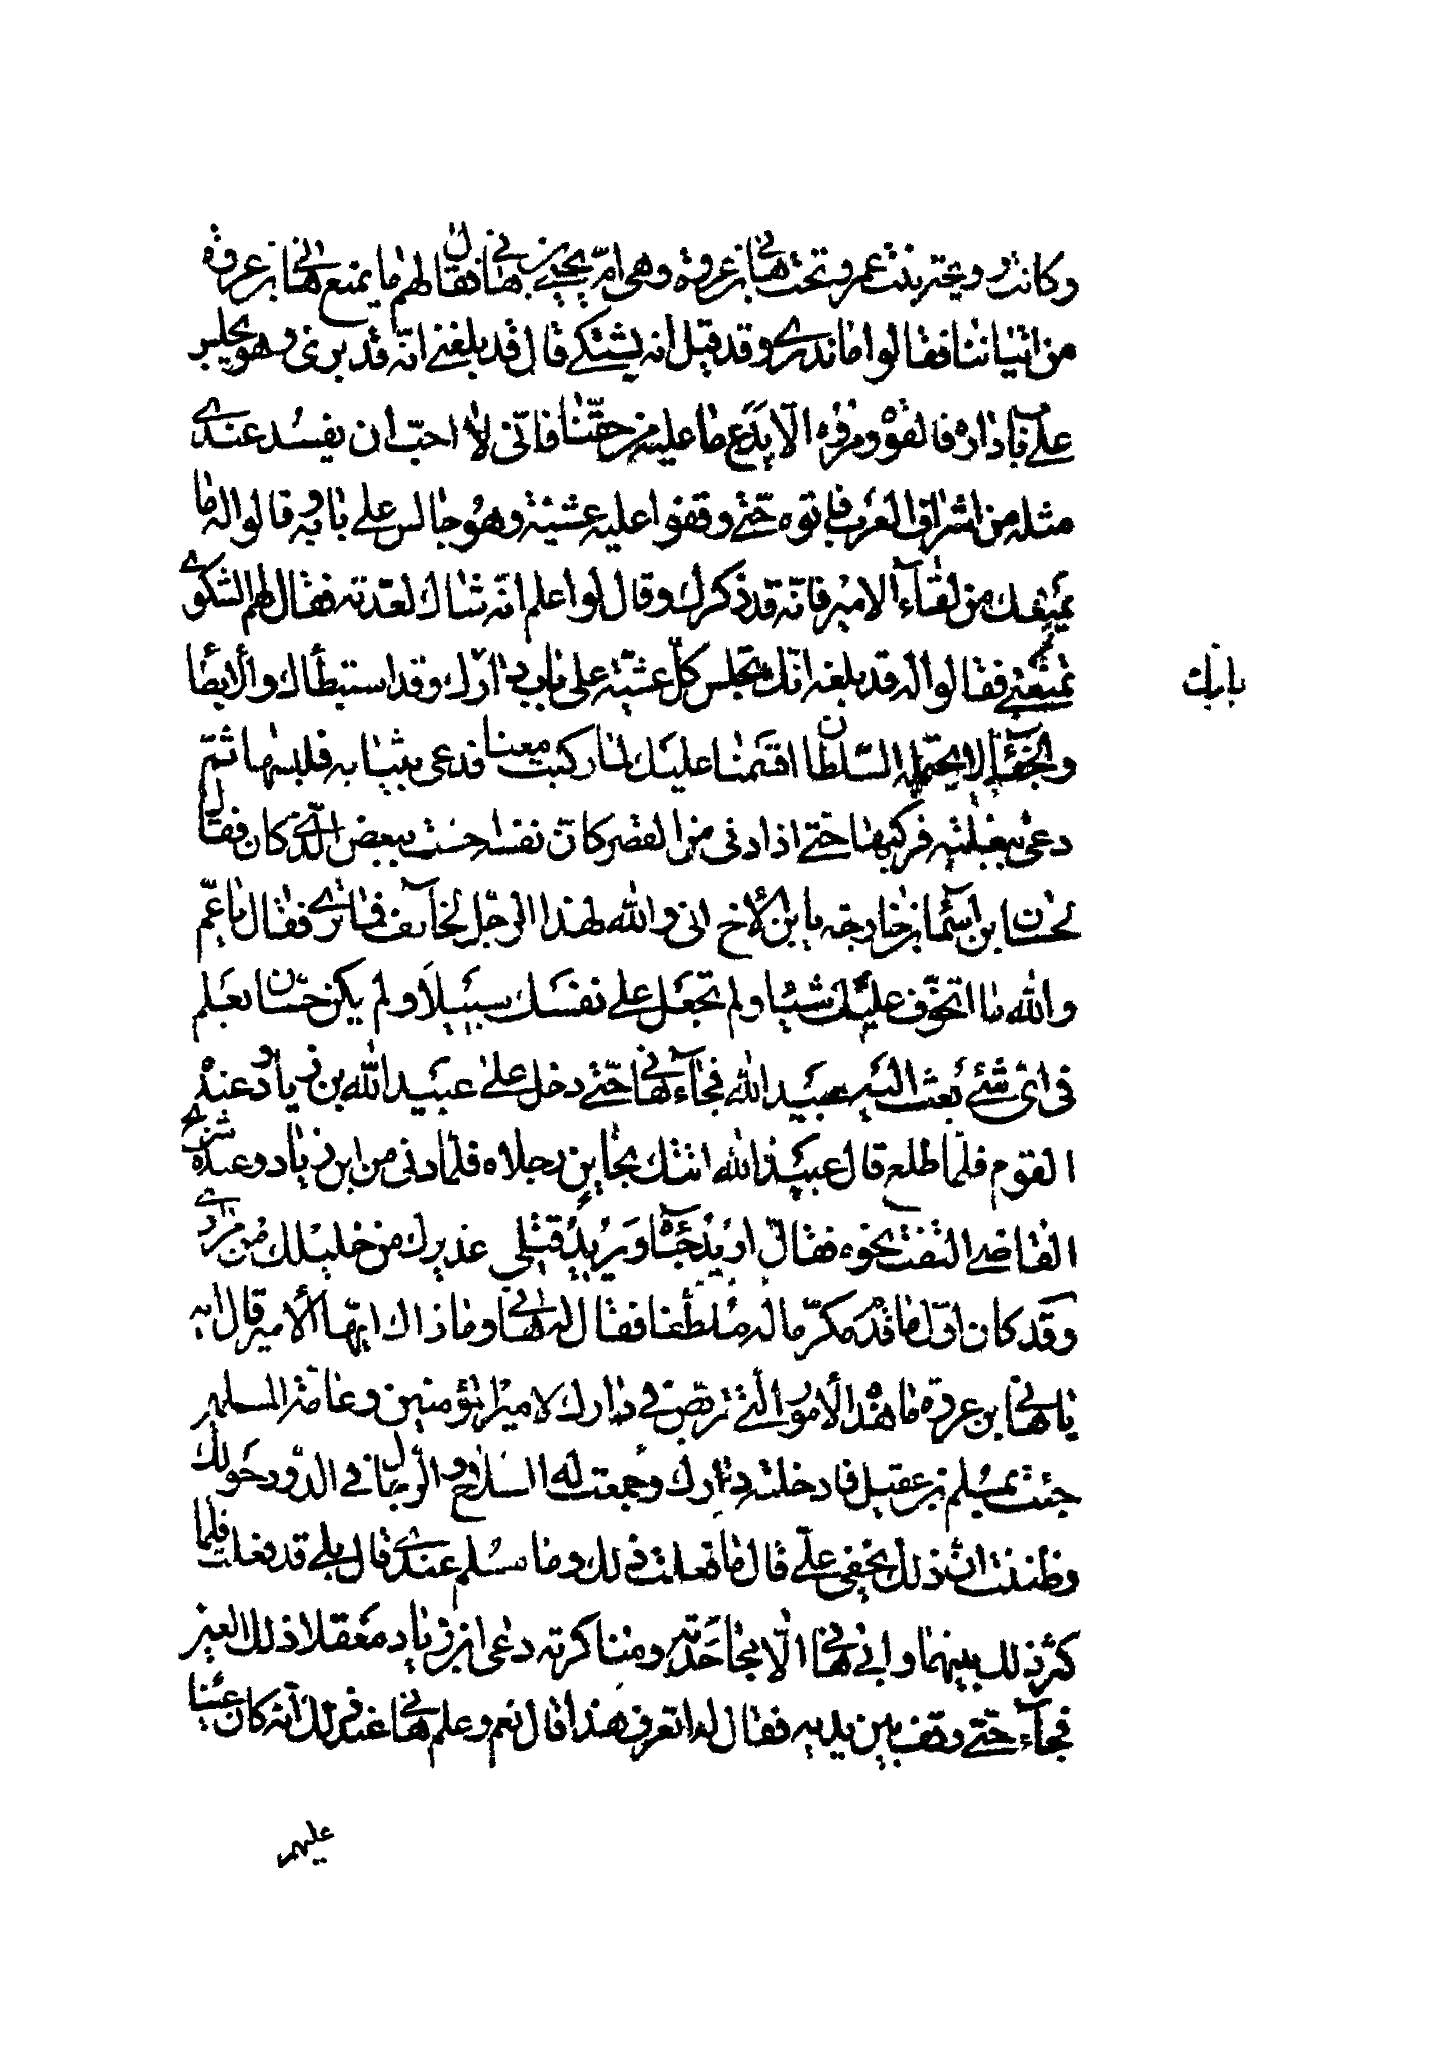 وكانت رويحة بنت عمرو تحت هاني بن عروة وهي ام يحيى بن هاني فقال لهم ما يمنع هاني بن عروة
من اتياننا فقالوا ما ندري وقد قيل انه يشتكي قال قد بلغني انه قد برئ وهو يجلس
على باب داره فالقوه ومروه الا يدع ما عليه من حقنا فاني لا احب ان يفسد عندي
مثله من اشراف العرب فاتوه حتى وقفوا عليه عشية وهو جالس على بابه وقالوا له ما
يمنعك من لقاء الامير فانه قد ذكرك وقال لو اعلم انه شاك لعدته فقال لهم الشكوى
تمنعني فقالوا له قد بلغه انك تجلس كل عشية على باب دارك وقد استبطاك والابطا
والجفاء لا يحتمله السلطان اقسمنا عليك لما ركبت معنا فدعى بثيابه فلبسها ثم
دعى ببغلته فركبها حتى اذا دنى من القصر كان نفسه حست ببعض الذي كان فقال
لحسان بن اسما بن خارجه يا بن الاخ اني والله لهذا الرجل لخائف فما ترى فقال يا عم
والله ما اتخوف عليك شيئا ولم تجعل على نفسك سبيلا ولم يكن حسان يعلم
في اي شئ بعث اليه عبيد الله فجاء هاني حتى دخل على عبيد الله بن زياد وعنده
القوم فلما طلع قال عبيد الله اتتك بخاين رجلاه فلما دنى من ابن زياد وعنده شريح
القاضي التفت نحوه فقال اريد حباه ويريد قتلي عذيرك من خليلك من مراد
وقد كان اول ما قدم مكرما له ملطفا فقال له هاني وما ذاك ايها الامير قال ايه
يا هاني بن عروة ما هذه الامور التي تربص في دارك لامير المؤمنين وعامة المسلمين
جئت بمسلم بن عقيل فادخلته دارك وجمعت له السلاح والرجال في الدور حولك
وظننت ان ذلك يخفى علي قال ما فعلت ذلك وما مسلم عندي قال بلى قد فعلت فلما
كثر ذلك بينهما وابى هاني الا مجاحدته ومناكرته دعى ابن زياد معقلا ذلك العين
فجاء حتى وقف بين يديه فقال له اتعرف هذا قال نعم وعلم هاني عند ذلك انه كان عينا
بابك
عليهم